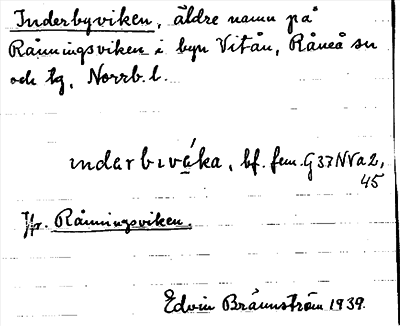 Inderbyviken, äldre namn på
Rånningsviken i byn Vitån, Råneå sn
och tg, Norrb. l.
ındarbıvé̱ka, bf. fem. G37NVa2,
45
Jfr. Rånningsviken.
Edvin Brännström 1939.